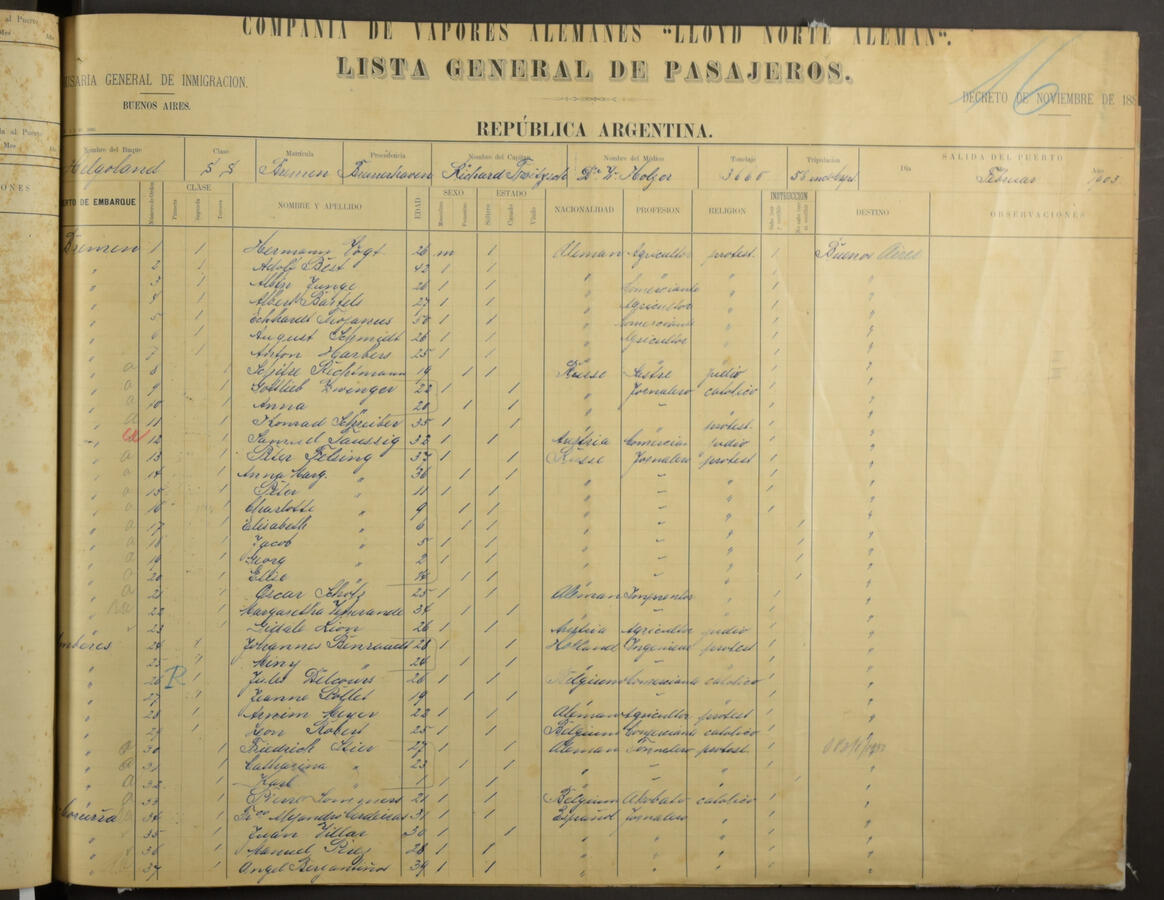 al Puerto
Mes Año
da al Puerto
Mes Año
IONES
COMPAÑIA DE VAPORES ALEMANES "LLOYD NORTE ALEMAN".
LISTA GENERAL DE PASAJEROS.
ISARIA GENERAL DE INMIGRACION.
BUENOS AIRES.
16
DECRETO DE NOVIEMBRE DE 188
REPÚBLICA ARGENTINA.
Nombre del Buque Clase Matrícula Procedencia Nombre del Capitan Nombre del Médico Tonelaje Tripulacion SALIDA DEL PUERTO
Día Año
Helgoland Bremen Bremerhaven Richard Dr. W. Holzer 3666 56 Februar 1903
RTO DE EMBARQUE CLASE NOMBRE Y APELLIDO EDAD SEXO ESTADO NACIONALIDAD PROFESION RELIGION INSTRUCCION DESTINO OBSERVACIONES
Primera Segunda Tercera Masculino Femenino Soltero Casado Viudo
Bremen 1 1 Hermann Vogt 26 m 1 Aleman Agricultor protest. 1 Buenos Aires
" 2 1 Adolf Best 42 1 1 " " " 1 "
" 3 1 Albin Junge 26 1 1 " Comerciante " 1 "
" 4 1 Albert Bartels 27 1 1 " Agricultor " 1 "
" 5 1 Eckhardt Trojanus 50 1 1 " Comerciante " 1 "
" 6 1 August Schmidt 26 1 1 " Agricultor " 1 "
" 7 1 Anton Harbers 25 1 1 " " " 1 "
" a 8 1 19 1 1 Russe Sastre judio 1 "
" a 9 1 Gottlieb Zwinger 22 1 1 " Jornalero catolico 1 "
" a 10 1 Anna " 20 1 1 " " " 1 "
" a 11 1 Konrad Schreiber 35 1 1 " protest. 1 "
" a 12 1 Samuel Taussig 32 1 1 Austria Comercian judio 1 "
" a 13 1 Peter Felsing 37 1 1 Russe Jornalero protest 1 "
" a 14 1 Anna Marg. " 36 1 1 " " " 1 "
" a 15 1 Peter " 11 1 1 " " " 1 "
" a 16 1 Charlotte " 9 1 1 " " " 1 "
" a 17 1 Elisabeth " 6 1 1 " " " 1 "
" a 18 1 Jacob " 5 1 1 " " " 1 "
" a 19 1 Georg " 2 1 1 " " " 1 "
" a 20 1 Elise " 1 1 " " " 1 "
" a 21 1 Oscar 25 1 1 Aleman " 1 "
" 22 1 Margaretha 34 1 1 " " " 1 "
" 23 1 26 1 1 Austria Agricultor judio 1 "
Amberes 24 1 Johannes 28 1 1 Holland Ingenieur protest 1 "
" 25 " Miny " 24 1 1 " " " 1 "
" 26 R 1 Jules Delcours 26 1 1 Belgium Comerciante catolico 1 "
" 27 1 Jeanne 19 1 1 " " " 1 "
" 28 1 Armim Meyer 22 1 1 Aleman Agricultor protest 1 "
" 29 1 Leon Robert 25 1 1 Belgium Comerciante catolico 1 "
" a 30 1 Friedrich Stier 27 1 1 Aleman Jornalero protest 1
" a 31 1 Catharina " 23 1 1 " " " 1 "
" a 32 1 Karl " 1 1 1 " " " 1 "
" a 33 1 Pierre 21 1 1 Belgium Akobato catolico 1 "
Coruña 34 1 Fr.co Alejandro 31 1 1 Español Jornalero " 1 "
" 35 1 Juan Villar 30 1 1 " " " 1 "
" 36 1 Manuel 28 1 1 " " " 1 "
" 37 1 Angel Benjamiños 39 1 1 " " " 1 "